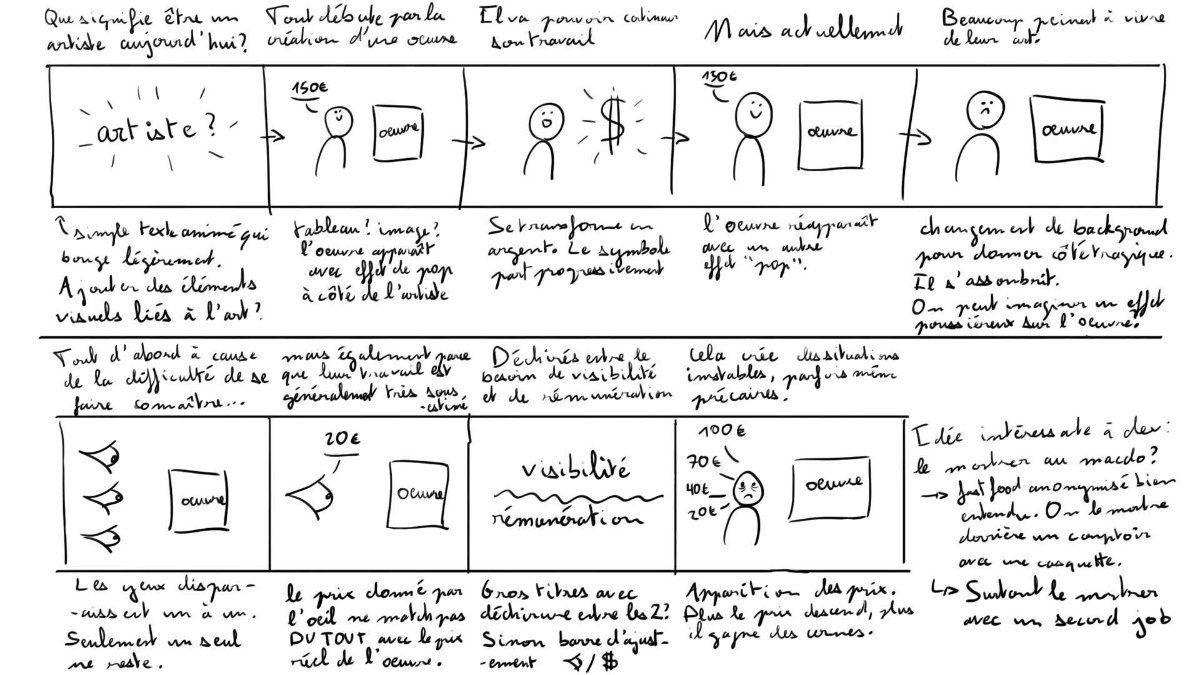 Que signifie être un
artiste aujourd'hui?
Tout débute par la
création d'une oeuvre
Il va pouvoir continuer
son travail
Mais actuellement
Beaucoup peinent à vivre
de leur art.
artiste?
150€
oeuvre
$
150€
oeuvre
oeuvre
↑simple texte animé qui
bouge légèrement.
Ajouter des éléments
visuels liés à l'art?
tableau? image?
l'oeuvre apparaît
avec effet de pop
à côté de l'artiste
Se transforme en
argent. Le symbole
part progressivement
l'oeuvre réapparaît
avec un autre
effet "pop".
changement de background
pour donner côté tragique.
Il s'assombrit.
On peut imaginer un effet
poussiéreux sur l'oeuvre?
Tout d'abord à cause
de la difficulté de se
faire connaître...
mais également parce
que leur travail est
généralement très sous
-estimé
Déchirés entre le
besoin de visibilité
et de rémunération
Cela crée des situations
instables, parfois même
précaires.
oeuvre
20€
oeuvre
visibilité
rémunération
100€
70€
40€
20€
oeuvre
Les yeux dispar-
-aissent un à un.
Seulement un seul
ne reste.
le prix donné par
l'oeil ne match pas
DU TOUT avec le prix
réel de l'oeuvre.
Gros titres avec
déchirure entre les 2?
Sinon barre d'ajust-
-ement /$
Apparition des prix.
Plus le prix descend, plus
il gagne des cernes.
Idée intéressante à dev:
le montrer au macdo?
→ fast food anonymisé bien
entendu. On le montre
derrière un comptoir
avec une casquette.
↳ Surtout le montrer
avec un second job